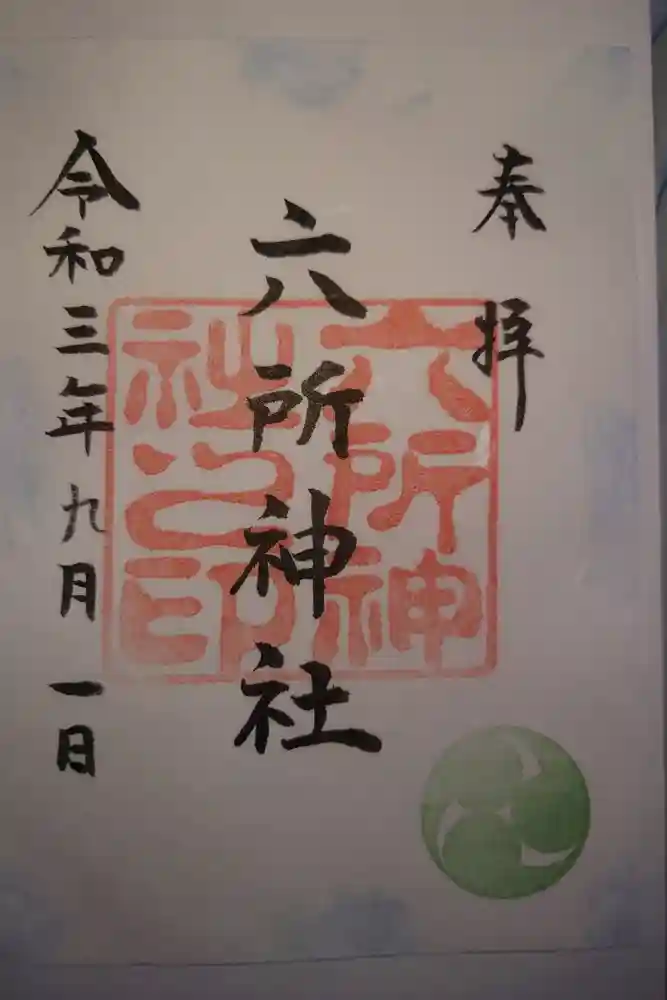 奉拝
六所神社
六所神
社之印
令和三年九月一日